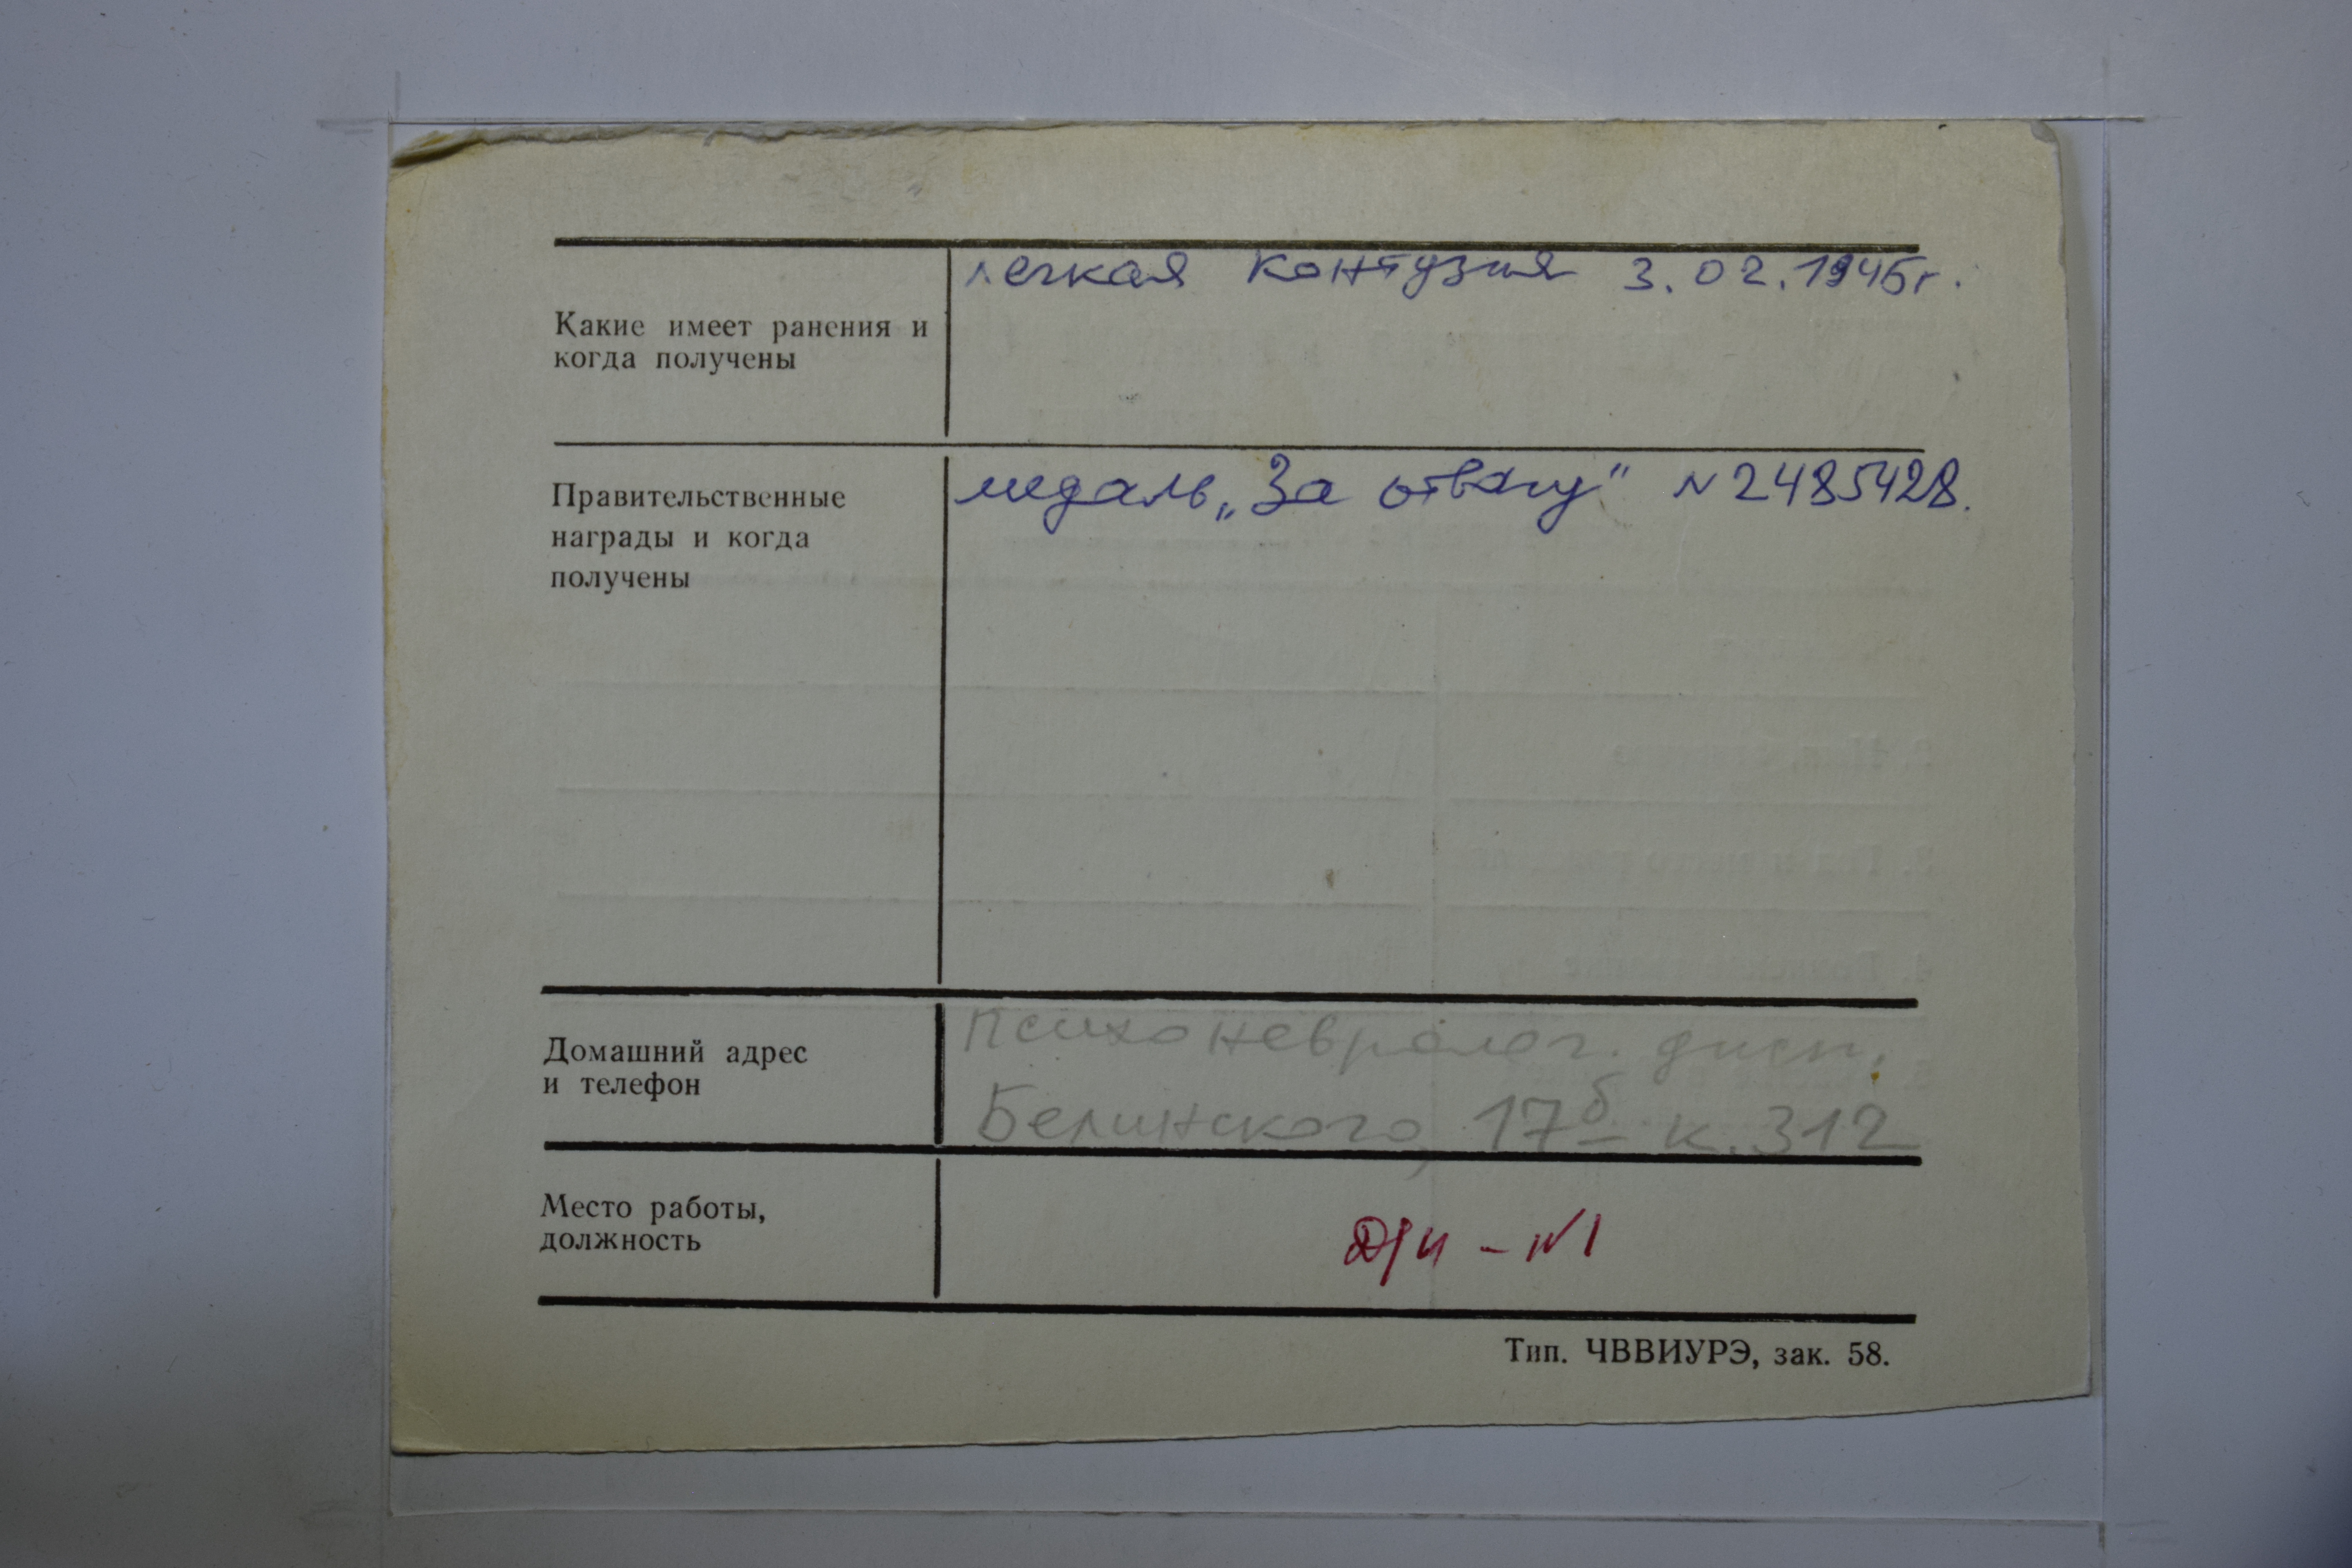 легкая контузия 3.02.1945г.
Какие имеет ранения и
когда получены
медаль „За отвагу" N 2485428.
Правительственные
награды и когда
получены
Психоневролог. дисп.
Домашний адрес
и телефон
Белинского, 17б к. 312
Место работы,
должность
- N1
Тип. ЧВВИУРЭ, зак. 58.